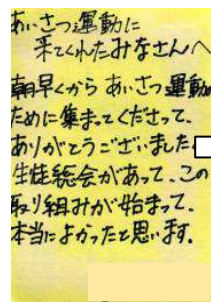 あいさつ運動に
来てくれたみなさんへ
朝早くから あいさつ運動の
ために集まってくださって、
ありがとうございました
生徒総会があって、この
取り組みが始まって、
本当によかったと思います。